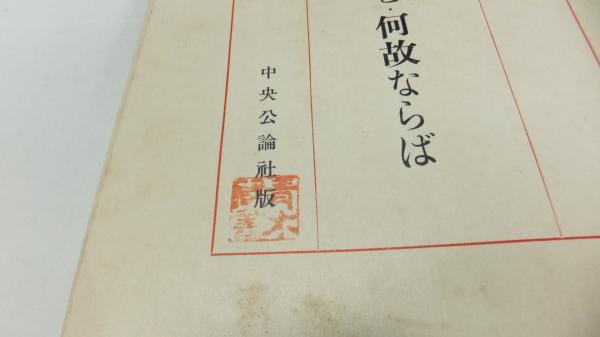 ・何故ならば
中央公論社版